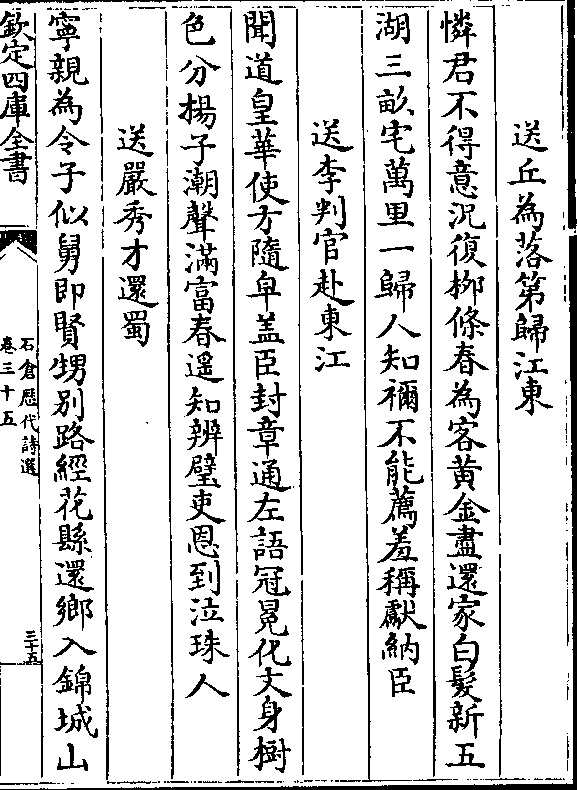 送丘為落第歸江東
憐君不得意況復栁條春為客黄金盡還家白髮新五
湖三畝宅萬里一歸人知禰不能薦羞稱獻納臣
送李判官赴東江
聞道皇華使方隨皁盖臣封章通左語冠冕化文身樹
色分揚子潮聲滿富春遥知辨璧吏恩到泣珠人
送嚴秀才還蜀
寧親為令子似舅即賢甥别路經花縣還鄉入錦城山
欽定四庫全書
石倉歴代詩選
卷三十五
三十五